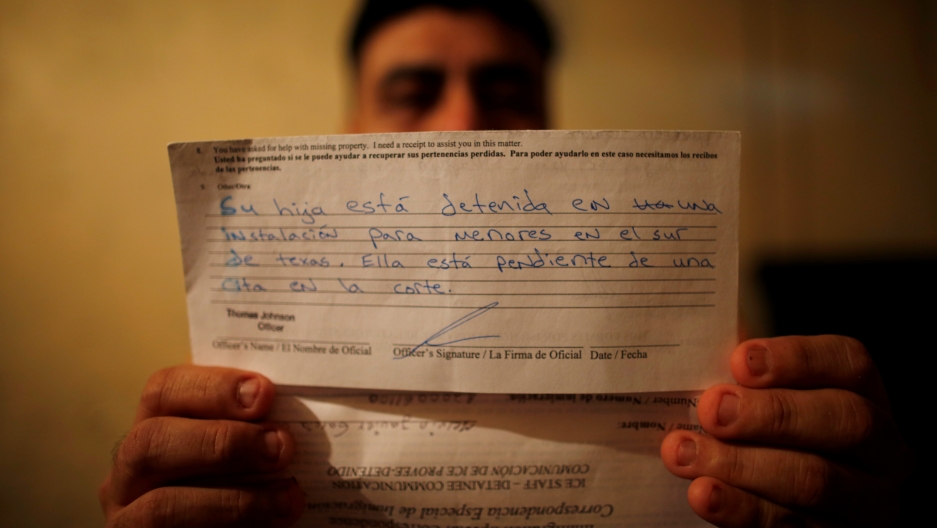 8. You have asked for help with missing property. I need a receipt to assist you in this matter.
Usted ha preguntado si se le puede ayudar a recuperar sus pertenencias perdidas. Para poder ayudarlo en este caso necesitamos los recibos
de las pertenencias.
9. Other/Otra
Su hija está detenida en una
instalación para menores en el sur
de texas. Ella está pendiente de una
cita en la corte.
Thomas Johnson
Officer
Officer's Name / El Nombre de Oficial Officer's Signature / La Firma de Oficial Date / Fecha
Number / Numero de inmigración
Name / Nombre:
COMUNICACIÓN DE ICE PROVEE-DETENIDO
ICE STAFF – DETAINEE COMMUNICATION
Correspondencia Especial de Inmigración